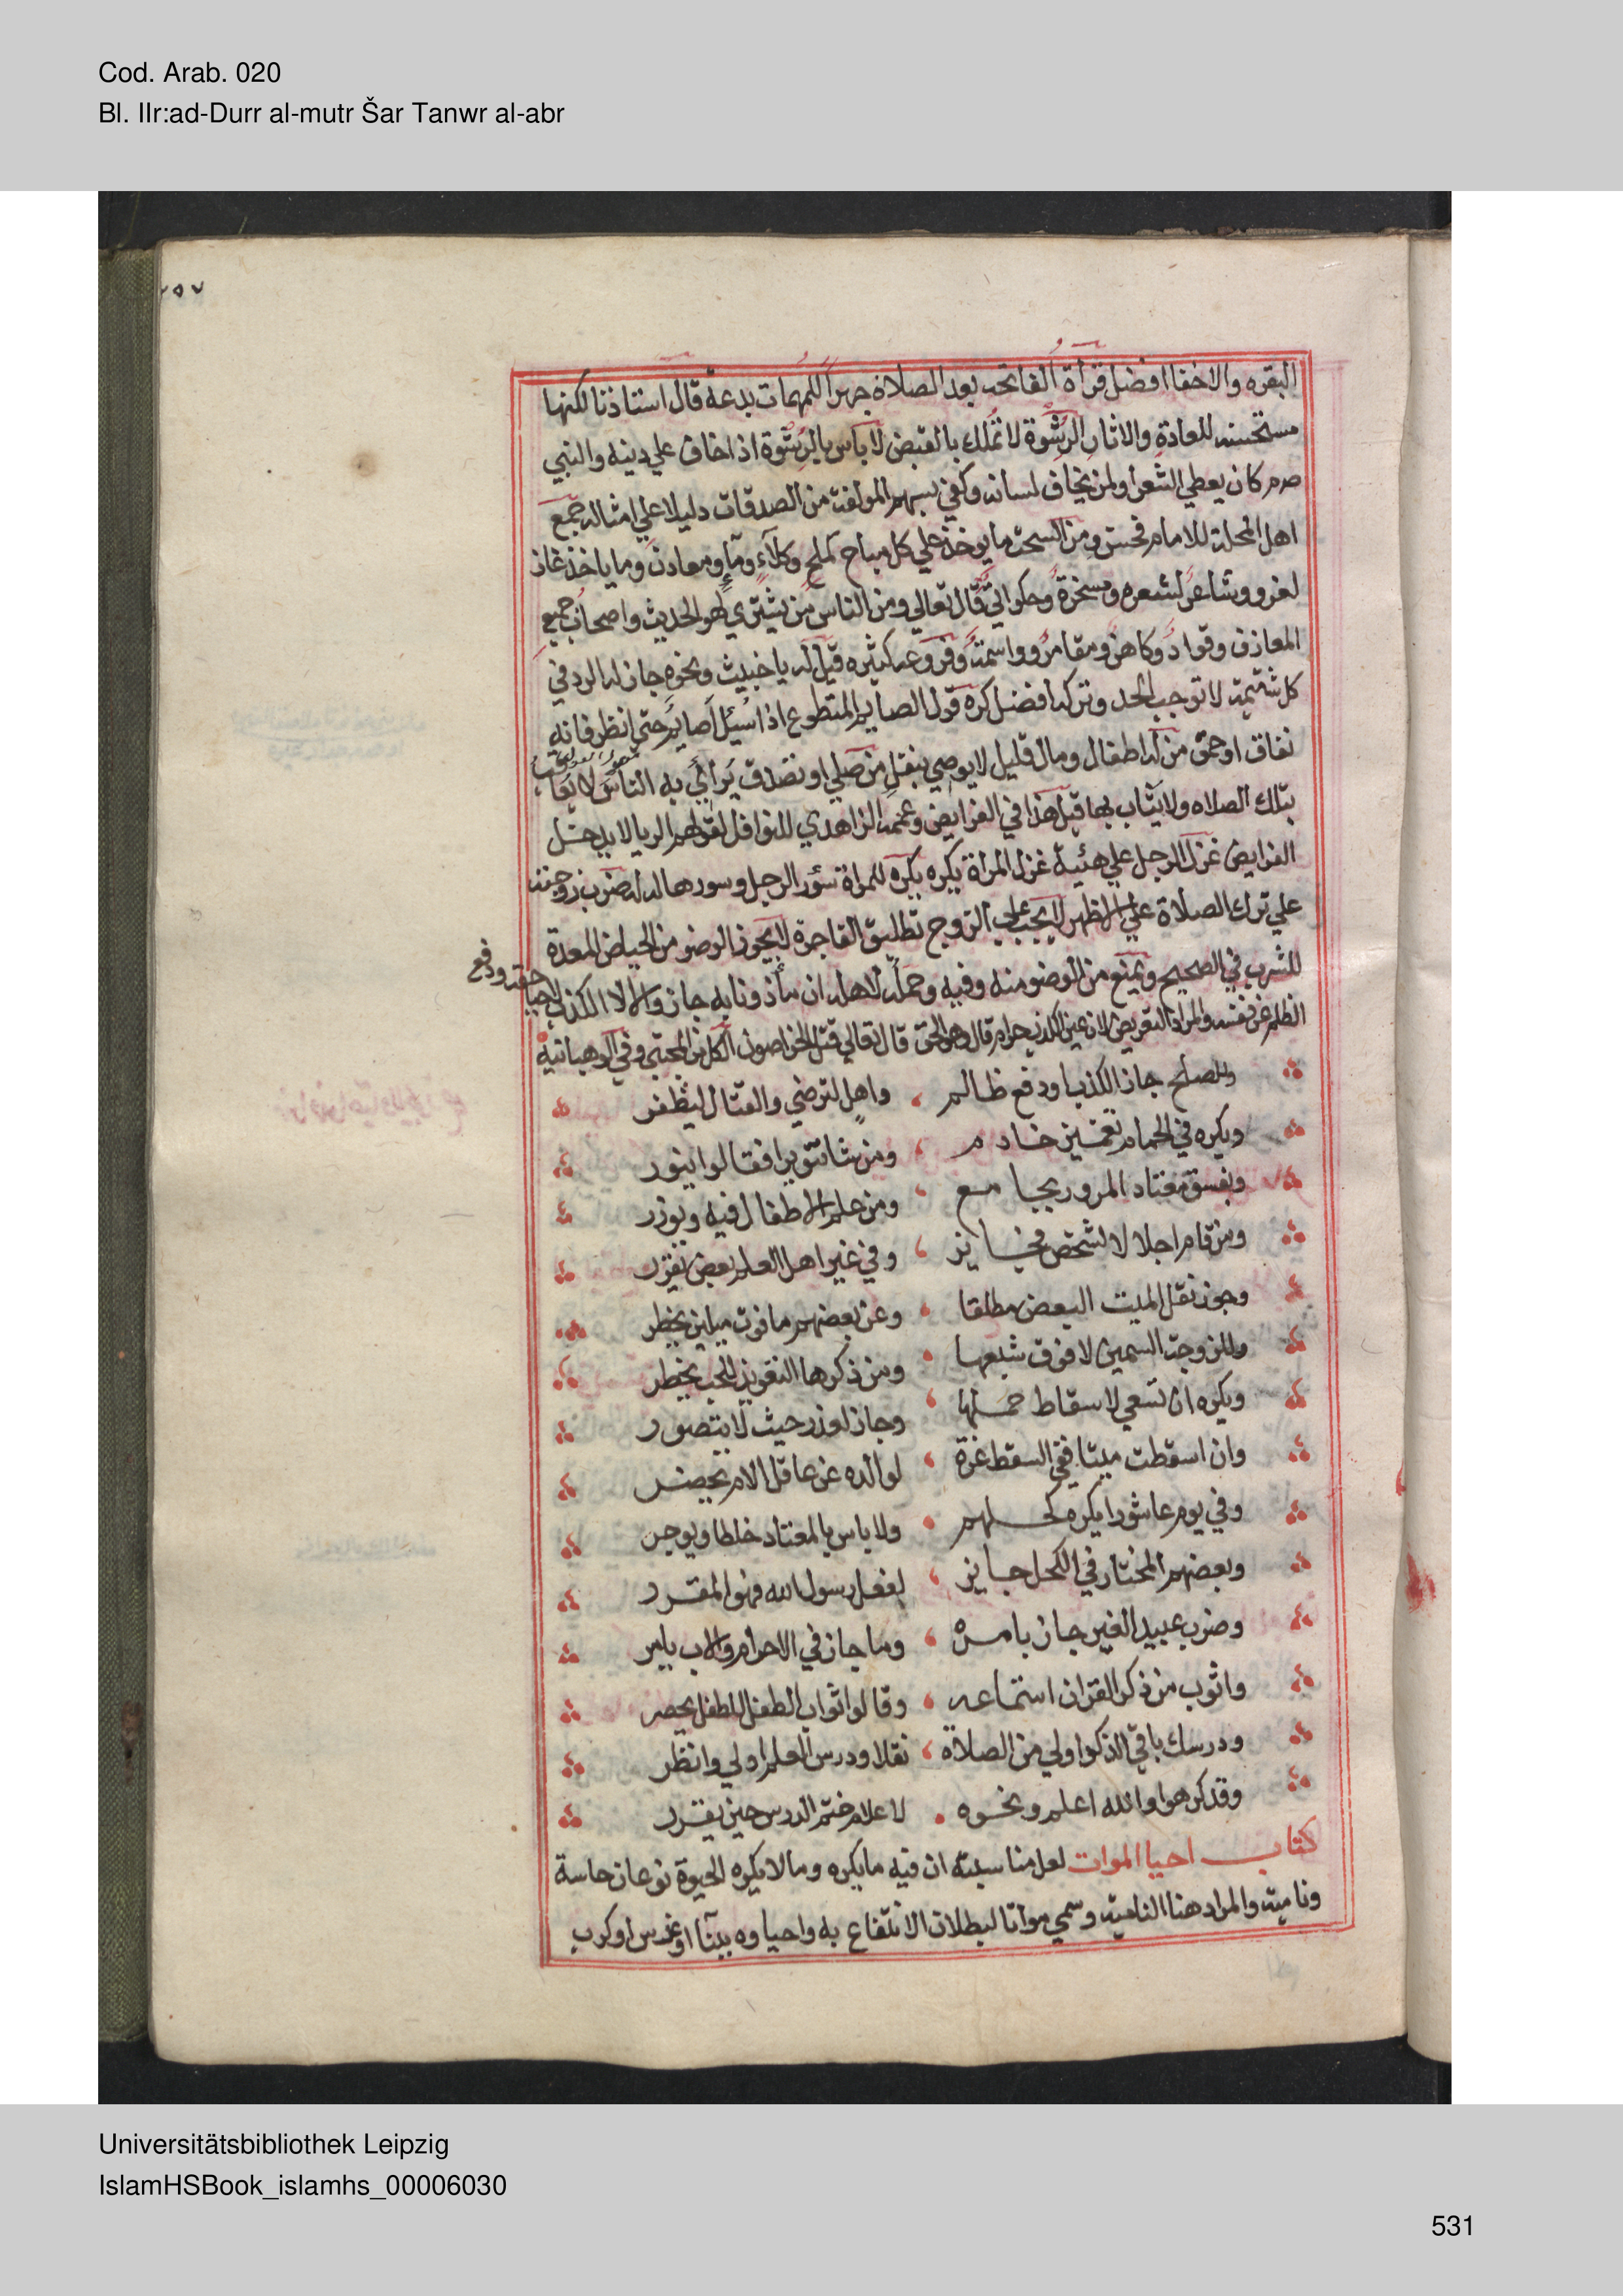 Cod. Arab. 020
Bl. IIr:ad-Durr al-mutr Šar Tanwr al-abr
٢٥٧
البقره والاخفا افضل قرأة الفاتحه بعد الصلاة جهرا للمهمات بدعة قال استاذنا لكنها
مستحسنه للعادة والاثار الرشوة لا تملك بالقبض لا باس بالرشوة اذا خاف علي دينه والنبي
صم كان يعطي الشعرا ولمن يخاف لسانه وكفي بسهم المولفة من الصدقات دليلا علي امثاله جمع
اهل المحلة للامام فحسن ومن السحت ما يوخذ علي كل مباح كملح وكلاء وماء ومعادن وما ياخذ غاز
لغزو وشاعر لشعره ومسخرة وحكواتي قال تعالي ومن الناس من يشتري لهو الحديث واصحاب جميع
المعازف وقواد وكاهن ومقامر وواسمة وفروعه كثيره قيل له يا خبيث ونحوه جاز له الرد في
كل شتيمة لا توجب الحد وتركه افضل كره قول الصايم المتطوع اذا سيل اصايم حتي انظر فانه
نفاق او حمق من له اطفال ومال قليل لا يوصي بنفل من صلي او تصدق يرائي به الناس لا يعاقب
بتلك الصلاه ولا يثاب بها قيل هذا في الفرايض وعممه الزاهدي للنوافل لقولهم الريا لا يدخل
الفرايض غزل الرجل علي هئية غزل المراة يكره يكره للمراة سؤر الرجل وسورها له له ضرب زوجته
علي ترك الصلاة علي الاظهر لا يجب علي الزوج تطليق الفاجرة لا يجوز الوضو من الحياض المعدة
للشرب في الصحيح ويمنع من الوضو منه وفيه وحمله لاهله ان مأذونا به جاز والا لا الكذب لاحيا حقه ودفع
الظلم عن نفسه والمراد التعريض لان عين الكذب حرام قال وهو الحق قال تعالي قتل الخراصون الكل من المجتبي وفي الوهبانية
وللصلح جاز الكذب او دفع ظالم ، واهل لترضي والقتال ليظفر
ويكره في الحمام تغميز خادم ، ومن شا تنويرا فقالوا ينور
ويفسق معتاد المرور بجامع ، ومن علم الاطفال فيه ويوزر
ومن قام اجلالا لشخص فجايز ، وفي غير اهل العلم بعض تقرر
وجوز نقل الميت البعض مطلقا ، وعن بعضهم ما فوق ميلين يحظر
وللزوجة السمين لا فوق شبعها ، ومن ذكرها التعويذ للحب يحظر
ويكره ان تسعي لاسقاط حملها ، وجاز لعذر حيث لا يتصور
وان اسقطت ميتا ففي السقط غرة ، لوالده عن عاقل الام تحضر
وفي يوم عاشورا يكره كحلهم ، ولا باس بالمعتاد خلطا ويوجر
وبعضهم المختار في الكحل جايز ، لفعل رسول الله فهو المقرر
وضرب عبيد الغير جاز بامره ، وما جاز في الاحرار والاب يامر
واثوب من ذكر القران استماعه ، وقالوا ثواب الطفل للطفل يحصر
ودرسك باقي الذكر اولي من الصلاة ، نفلا ودرس العلم اولي وانظر
وقد كرهوا والله اعلم ونحوه . لاعلام ختم الدرس حين يقرر
كتاب احيا الموات لعل مناسبته ان فيه ما يكره وما لا يكره الحيوة نوعان حاسة
ونامية والمراد هنا النامية وسمي مواتا لبطلان الانتفاع به واحياوه ببنآ او غرس او كرب
Universitätsbibliothek Leipzig
IslamHSBook_islamhs_00006030
531